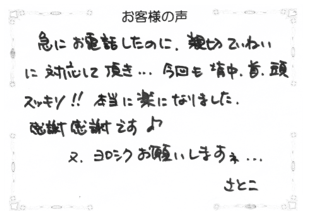 お客様の声
急にお電話したのに、親切ていねい
に対応して頂き... 今回も背中、首、頭
スッキリ!! 本当に楽になりました。
感謝感謝です♪
又、ヨロシクお願いしますネ...
さとこ